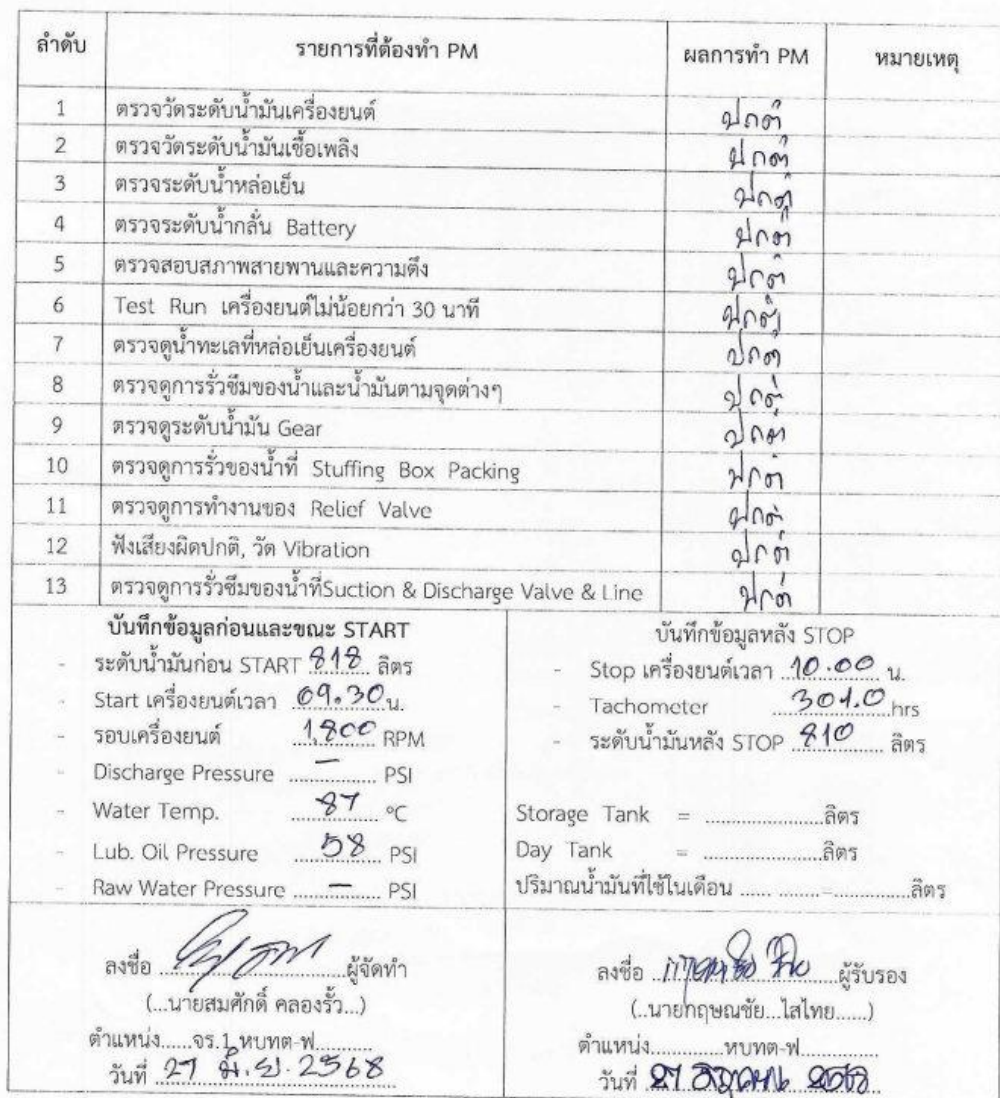 ลำดับ รายการที่ต้องทำ PM ผลการทำ PM หมายเหตุ
1 ตรวจวัดระดับน้ำมันเครื่องยนต์ ปกติ
2 ตรวจวัดระดับน้ำมันเชื้อเพลิง ปกติ
3 ตรวจระดับน้ำหล่อเย็น ปกติ
4 ตรวจระดับน้ำกลั่น Battery ปกติ
5 ตรวจสอบสภาพสายพานและความตึง ปกติ
6 Test Run เครื่องยนต์ไม่น้อยกว่า 30 นาที ปกติ
7 ตรวจดูน้ำทะเลที่หล่อเย็นเครื่องยนต์ ปกติ
8 ตรวจดูการรั่วซึมของน้ำและน้ำมันตามจุดต่างๆ ปกติ
9 ตรวจดูระดับน้ำมัน Gear ปกติ
10 ตรวจดูการรั่วของน้ำที่ Stuffing Box Packing ปกติ
11 ตรวจดูการทำงานของ Relief Valve ปกติ
12 ฟังเสียงผิดปกติ, วัด Vibration ปกติ
13 ตรวจดูการรั่วซึมของน้ำที่Suction & Discharge Valve & Line ปกติ
บันทึกข้อมูลก่อนและขณะ START
- ระดับน้ำมันก่อน START 818 ลิตร
- Start เครื่องยนต์เวลา 09.30 น.
- รอบเครื่องยนต์ 1,800 RPM
- Discharge Pressure – PSI
- Water Temp. 87 °C
- Lub. Oil Pressure 58 PSI
- Raw Water Pressure – PSI
บันทึกข้อมูลหลัง STOP
- Stop เครื่องยนต์เวลา 10.00 น.
- Tachometer 301.0 hrs
- ระดับน้ำมันหลัง STOP 810 ลิตร
Storage Tank = ........................ลิตร
Day Tank = ........................ลิตร
ปริมาณน้ำมันที่ใช้ในเดือน ...... ........=................ลิตร
ลงชื่อ ผู้จัดทำ
(...นายสมศักดิ์ คลองรั้ว...)
ตำแหน่ง......จร.1 หบทต-ฟ..........
วันที่ 27 มิ.ย. 2568
ลงชื่อ ผู้รับรอง
(..นายกฤษณชัย...ไสไทย......)
ตำแหน่ง.............หบทต-ฟ..............
วันที่ 27 มิถุนายน 2568